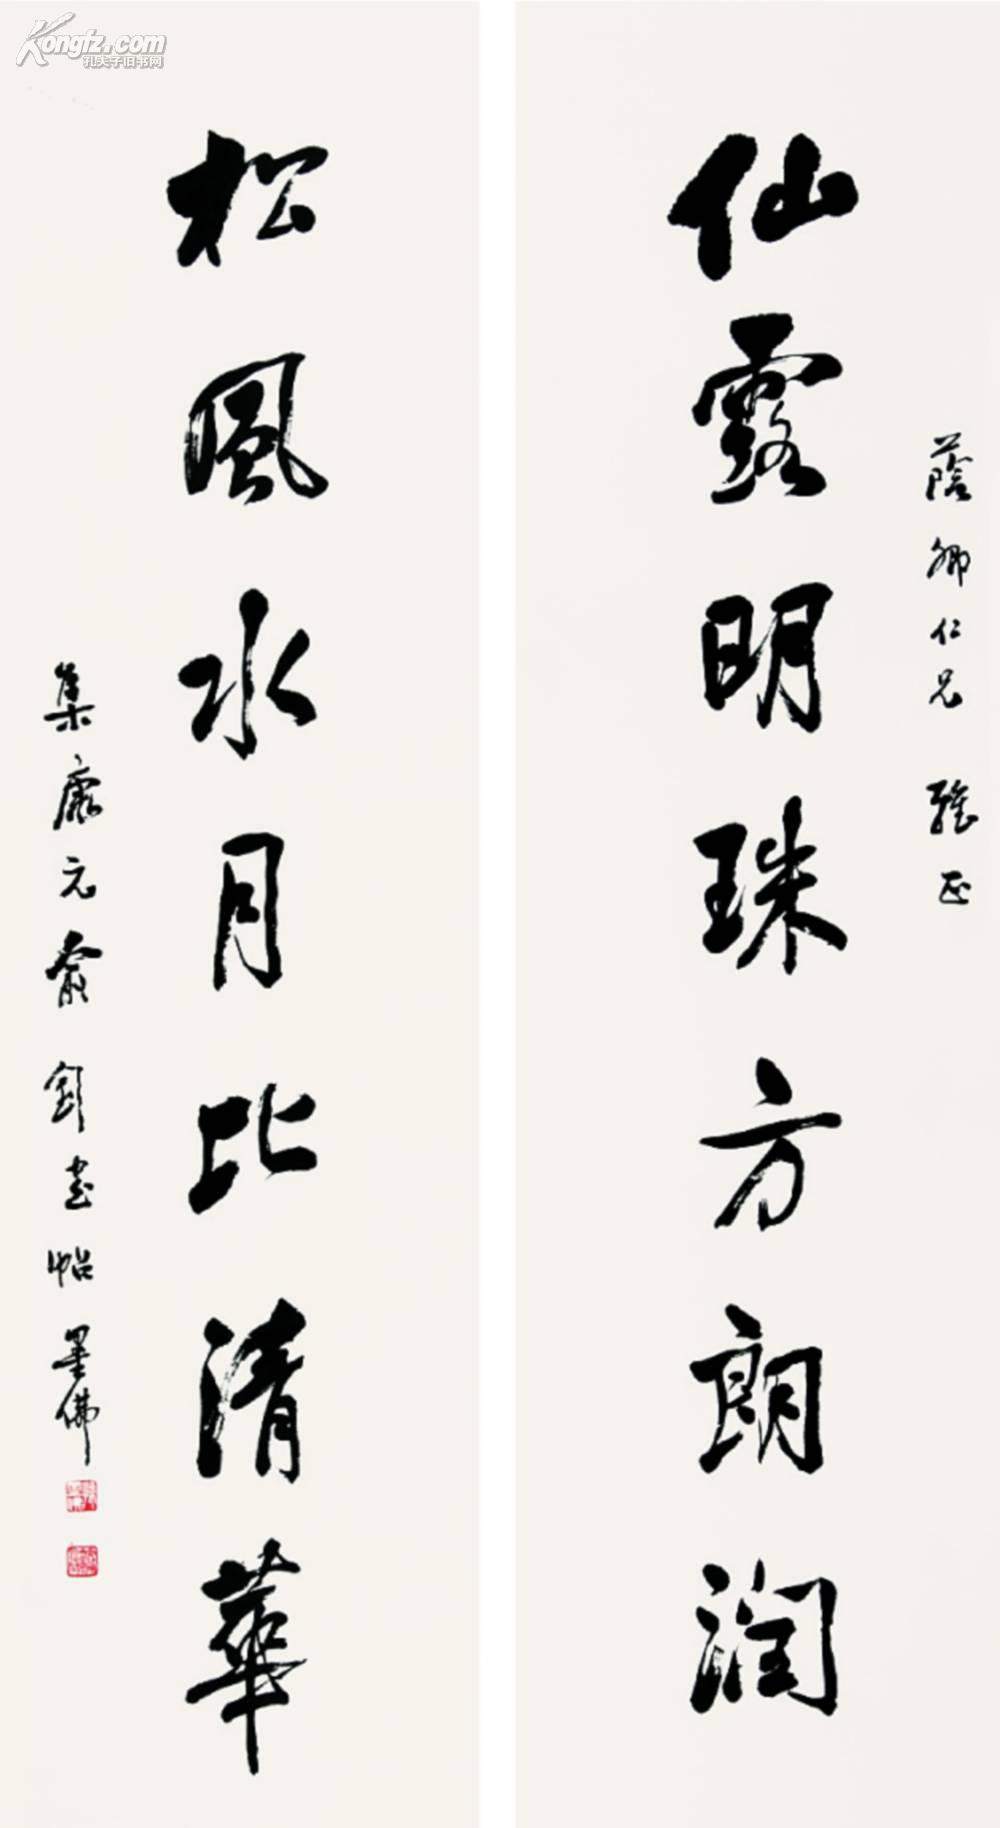 Kongfz.com
孔夫子旧书网
蔭卿仁兄 雅正
仙露明珠方朗潤
松風水月比清華
集康元俞釗書帖 墨佛